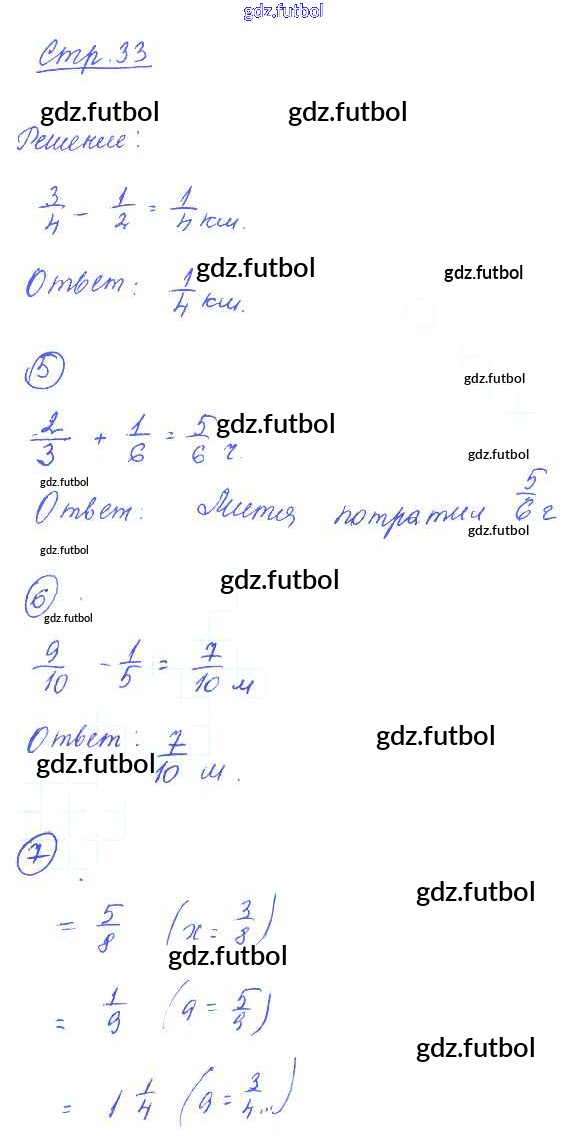 gdz.futbol
Стр. 33
gdz.futbol gdz.futbol
Решение:
3/4 - 1/2 = 1/4 км.
gdz.futbol gdz.futbol
Ответ: 1/4 км.
5
gdz.futbol
2/3 + 1/6 = 5/6 ч.
gdz.futbol
gdz.futbol
gdz.futbol
Ответ: Митя потратил 5/6 ч
gdz.futbol
gdz.futbol
gdz.futbol
6
gdz.futbol
9/10 - 1/5 = 7/10 м
Ответ: 7/10 м.
gdz.futbol
gdz.futbol
7
gdz.futbol
= 5/8 (x = 3/8)
gdz.futbol
= 1/9 (a = 5/9)
gdz.futbol
= 1 1/4 (a = 3/4...)